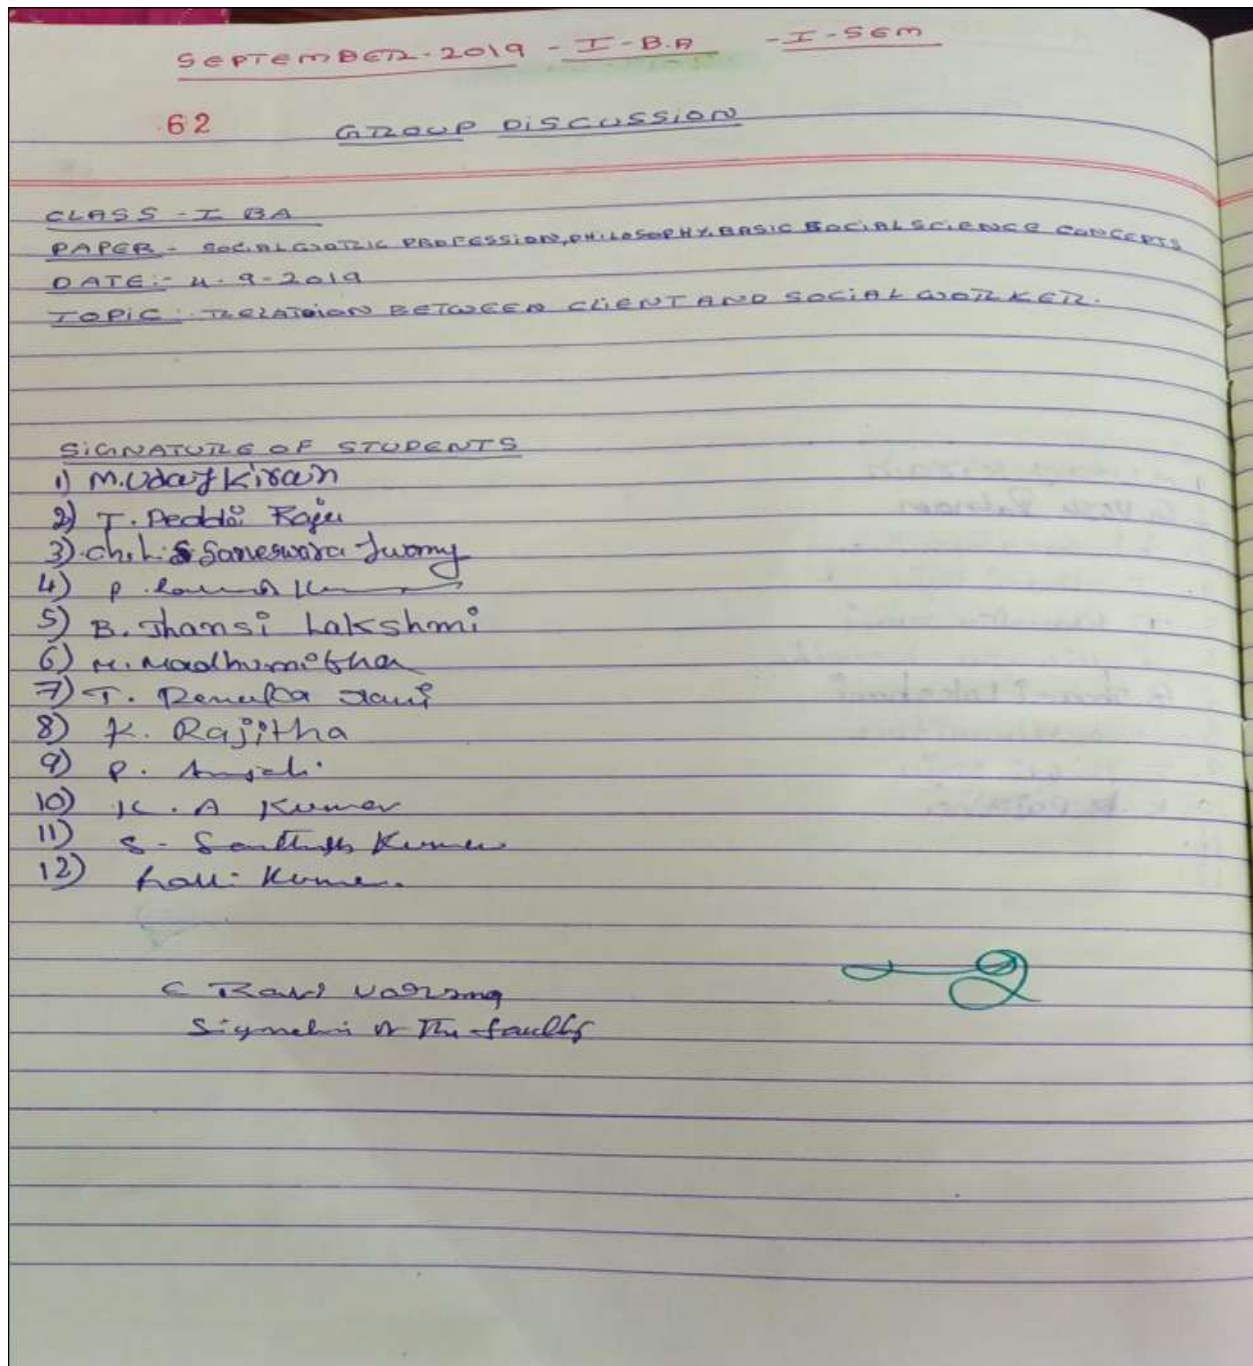 SEPTEMBER-2019 - I-B.A - I-SEM
62 GROUP DISCUSSION
CLASS - I BA
PAPER - SOCIAL WORK PROFESSION, PHILOSOPHY, BASIC SOCIAL SCIENCE CONCEPTS
DATE:- 4-9-2019
TOPIC: RELATION BETWEEN CLIENT AND SOCIAL WORKER.
SIGNATURE OF STUDENTS
1) M. Uday Kiran
2) T. Peddi Raju
3) Ch. L. S Saneswara Swamy
4) P.
5) B. Jhansi Lakshmi
6) M. Madhumitha
7) T. Renuka Rani
8) K. Rajitha
9) P. Anjali
10) K. A Kumar
11) S. Santhosh Kumar
12) Kumar.
C Ravi Varma
Signature of The faculty